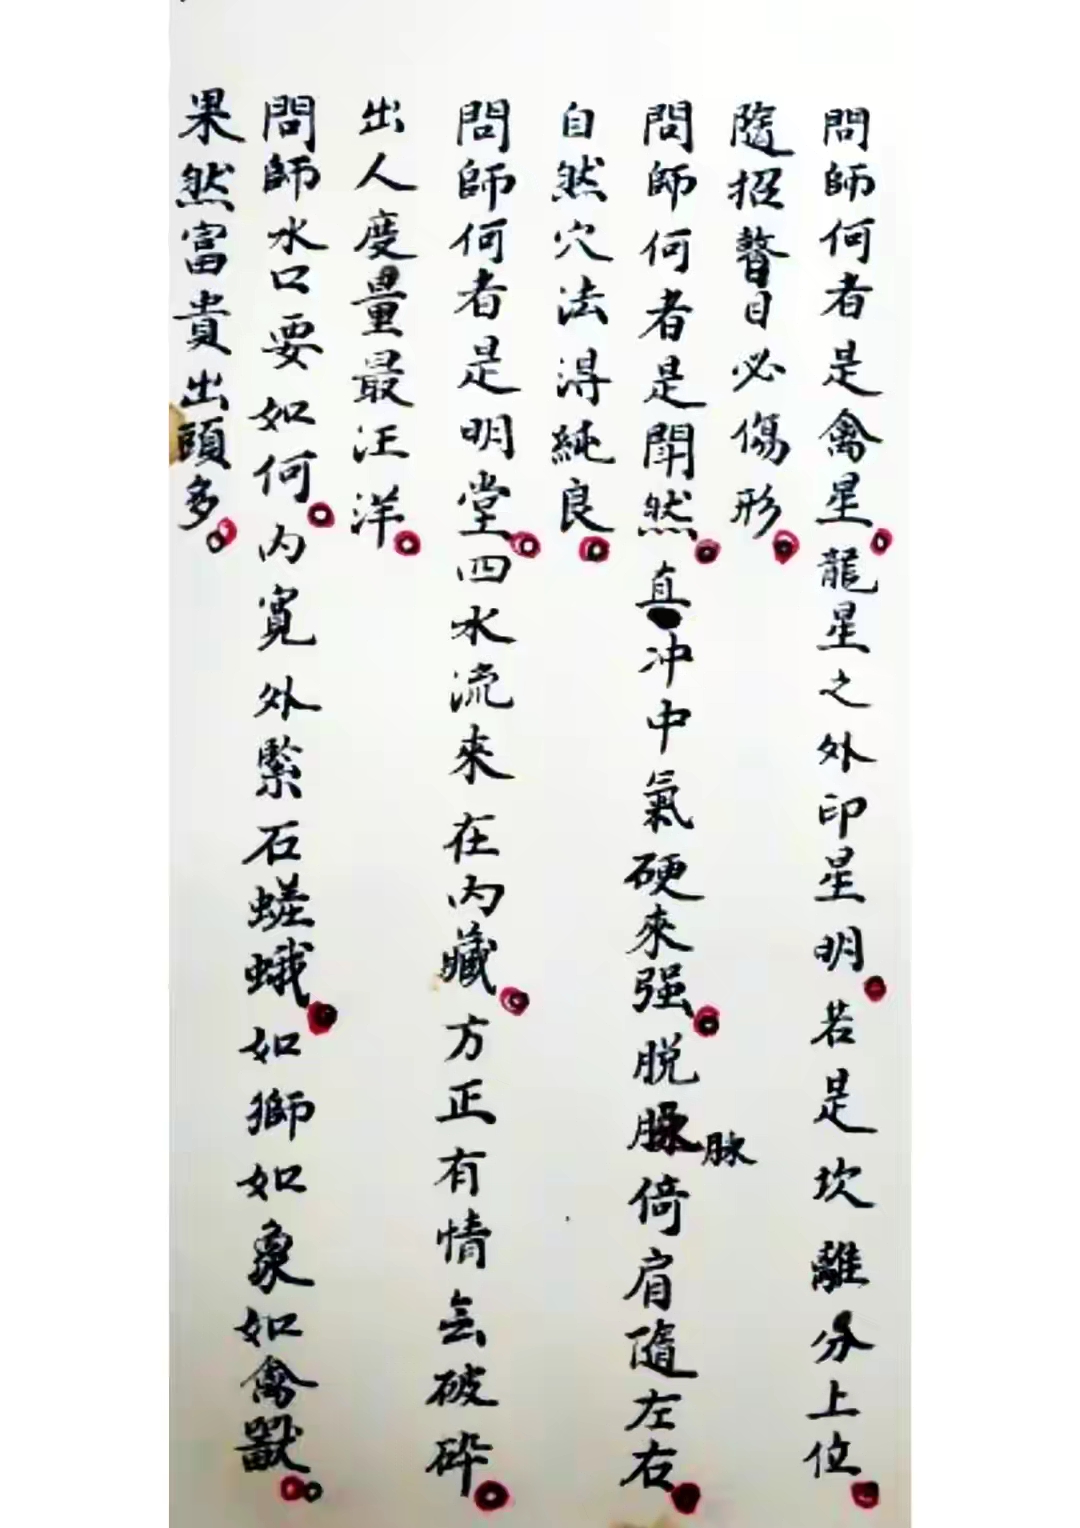 問師何者是禽星。龍星之外印星明。若是坎離分上位。
隨招瞽目必傷形。
問師何者是閗然。直冲中氣硬來强。脱脉脉倚肩隨左右。
自然穴法淂純良。
問師何者是明堂。四水流來在内藏。方正有情無破碎。
出人度量最汪洋。
問師水口要如何。内寛外緊石嵯峨。如獅如象如禽獸。
果然富貴出頭多。